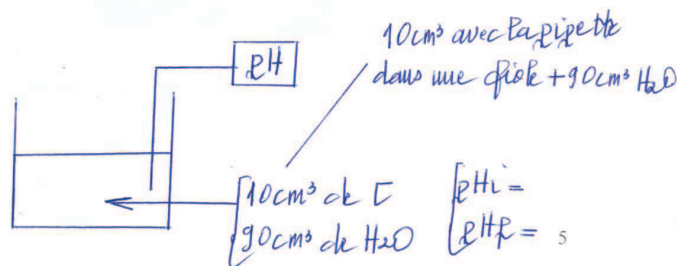 10cm³ avec la pipette
dans une fiole + 90cm³ H₂O
pH
10cm³ de C
90cm³ de H₂O
pHi =
pHf = 5